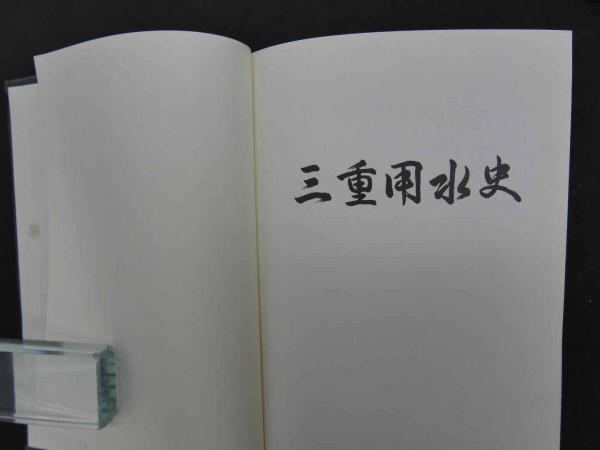 三重用水史